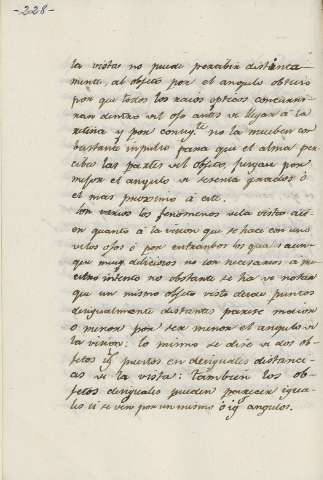 -228-
la vista no puede percebir distinta
mente, al objeto por el angulo obtuso
por que todos los raios opticos concurri
rian dentro del ojo antes de llegar á la
retina y por consig.te no la mueben con
bastante impulso para que el alma per
ciba las partes del objeto, juzgan por
mejor el angulo de sesenta grados ó
el mas proximo á este.
los fenomenos de la vista
en quanto á la vision que se hace con uno
de los ojos ó por entrambos los quales aun
que muy deliciosos no son necesarios a nu
estro intento no obstante se ha de notar
que un mismo objeto visto desde puntos
desigualmente distantes parese maior
o menor por ser menor el angulo de
la vision: lo mismo se dice de dos ob
jetos puestos en desiguales distanci
as de la vista: tambien los ob
jetos desiguales pueden parecer igua
les si se ven por un mismo ó ig angulos.